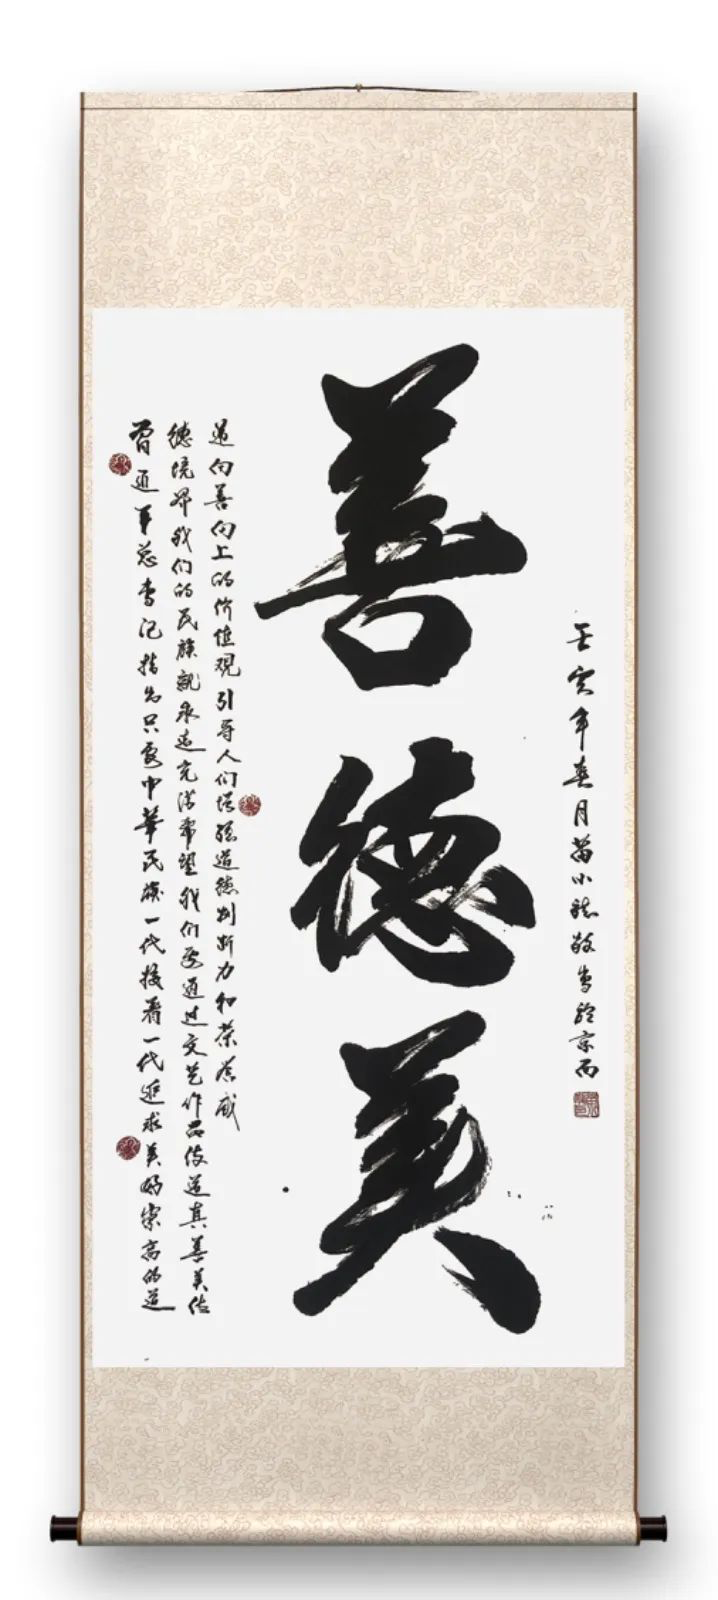 善德美
習近平总书记指出只要中華民族一代接着一代追求美好崇高的道
德境界我们的民族就永远充满希望我们要通过文艺作品传递真善美传
递向善向上的价值观引导人们增强道德判断力和荣辱感
壬寅年春月苗小敬书於京西